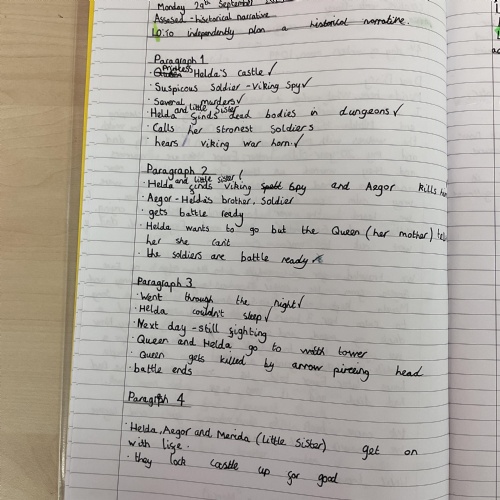 Monday 29th September
Assesed - historical narrative
LO: To independently plan a historical narrative.
Paragraph 1
· Princess Helda's castle ✓
· Suspicous Soldier - Viking Spy ✓
· Several murders ✓
and little sister
Helda finds dead bodies in dungeons ✓
· Calls her stronest Soldiers
· hears viking war horn. ✓
Paragraph 2
and little sister
· Helda finds Viking Spy and Aegor kills
· Aegor - Helda's brother, Soldier
· gets battle ready
· Helda wants to go but the Queen (her mother)
her she can't
· the soldiers are battle ready
Paragraph 3
· Went through the night ✓
· Helda couldn't sleep ✓
· Next day - still fighting
· Queen and Helda go to tower
· Queen gets killed by arrow pireeing head
· battle ends
Paragraph 4
· Helda, Aegor and Merida (Little Sister) get on
with lige.
· they lock castle up for good